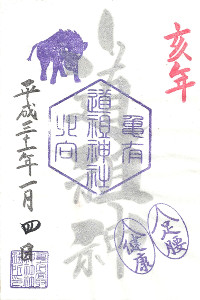 亥年
道祖神
亀有
道祖神社
北向
足腰
健康
平成三十一年一月四日